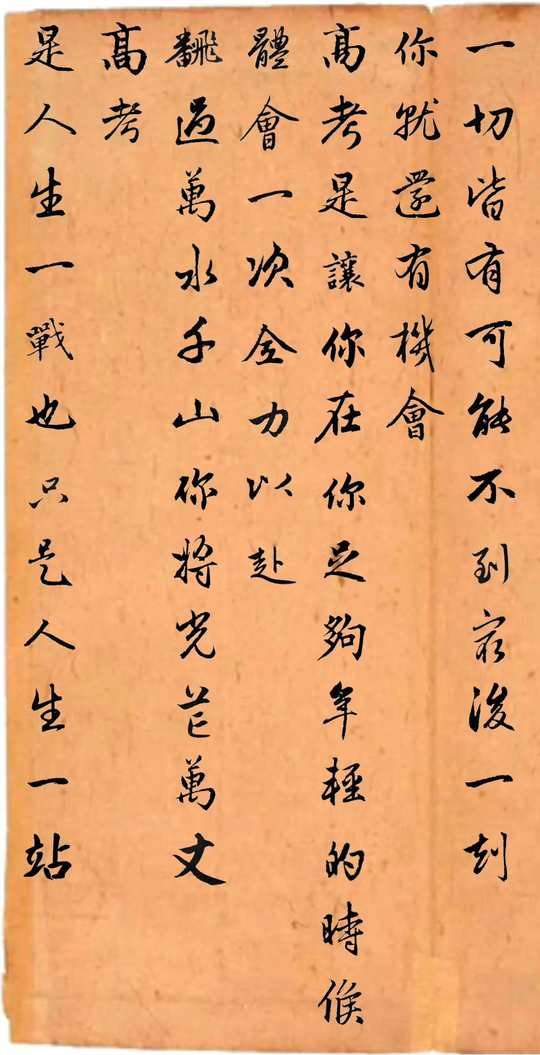 一切皆有可能不到最後一刻
你就還有機會
高考是讓你在你足夠年輕的時候
體會一次全力以赴
翻過萬水千山你將光芒萬丈
高考
是人生一戰也只是人生一站